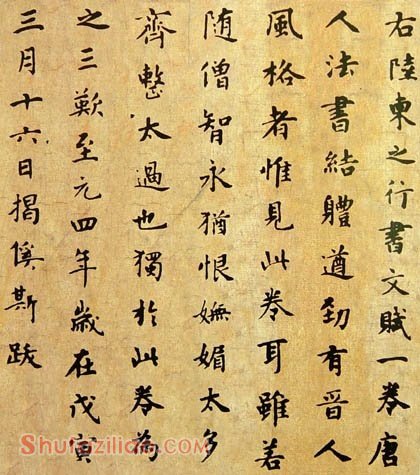 右陸柬之行書文賦一卷唐
人法書結體遒勁有晉人
風格者惟見此卷耳雖若
随僧智永猶恨嫵媚太多
齊整太過也獨於此卷為
之三歎至元四年歲在戊寅
三月十六日揭傒斯跋
Shufaziliao.com